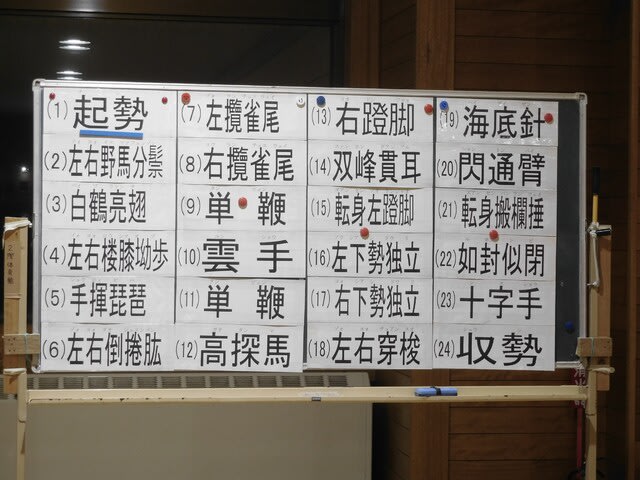 (1) 起勢
(2) 左右野馬分鬃
(3) 白鶴亮翅
(4) 左右楼膝拗歩
(5) 手揮琵琶
(6) 左右倒捲肱
(7) 左攬雀尾
(8) 右攬雀尾
(9) 単鞭
(10) 雲手
(11) 単鞭
(12) 高探馬
(13) 右蹬脚
(14) 双峰貫耳
(15) 転身左蹬脚
(16) 左下勢独立
(17) 右下勢独立
(18) 左右穿梭
(19) 海底針
(20) 閃通臂
(21) 転身搬欄捶
(22) 如封似閉
(23) 十字手
(24) 収勢